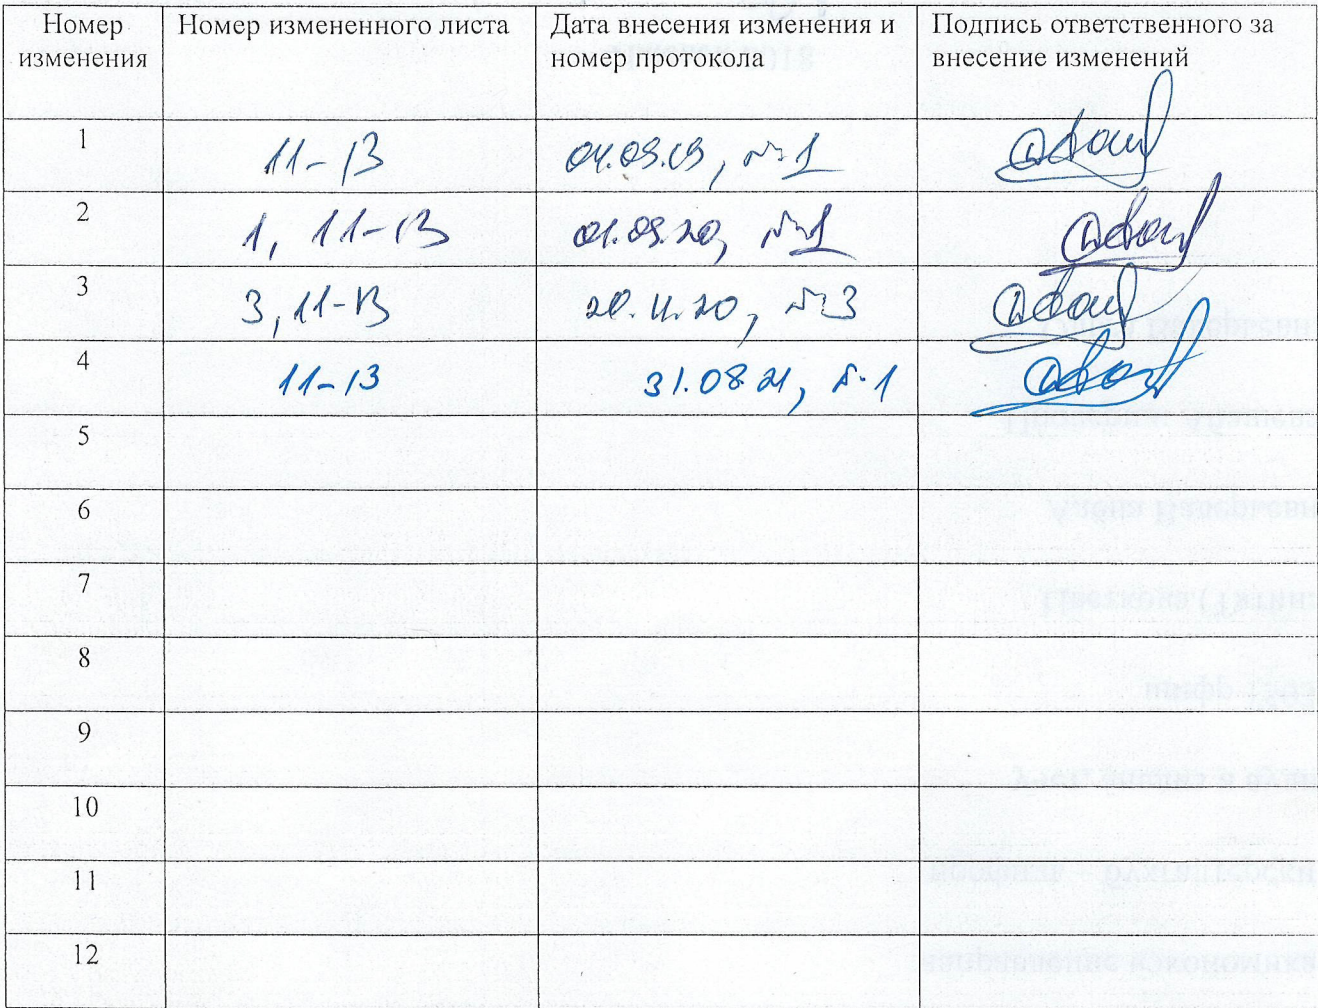 Номер измененния Номер измененного листа Дата внесения изменения и номер протокола Подпись ответственного за внесение изменений
1 11-13 04.09.19, №1
2 1, 11-13 01.09.20, №1
3 3, 11-13 20.11.20, №3
4 11-13 31.08.21, №1
5
6
7
8
9
10
11
12